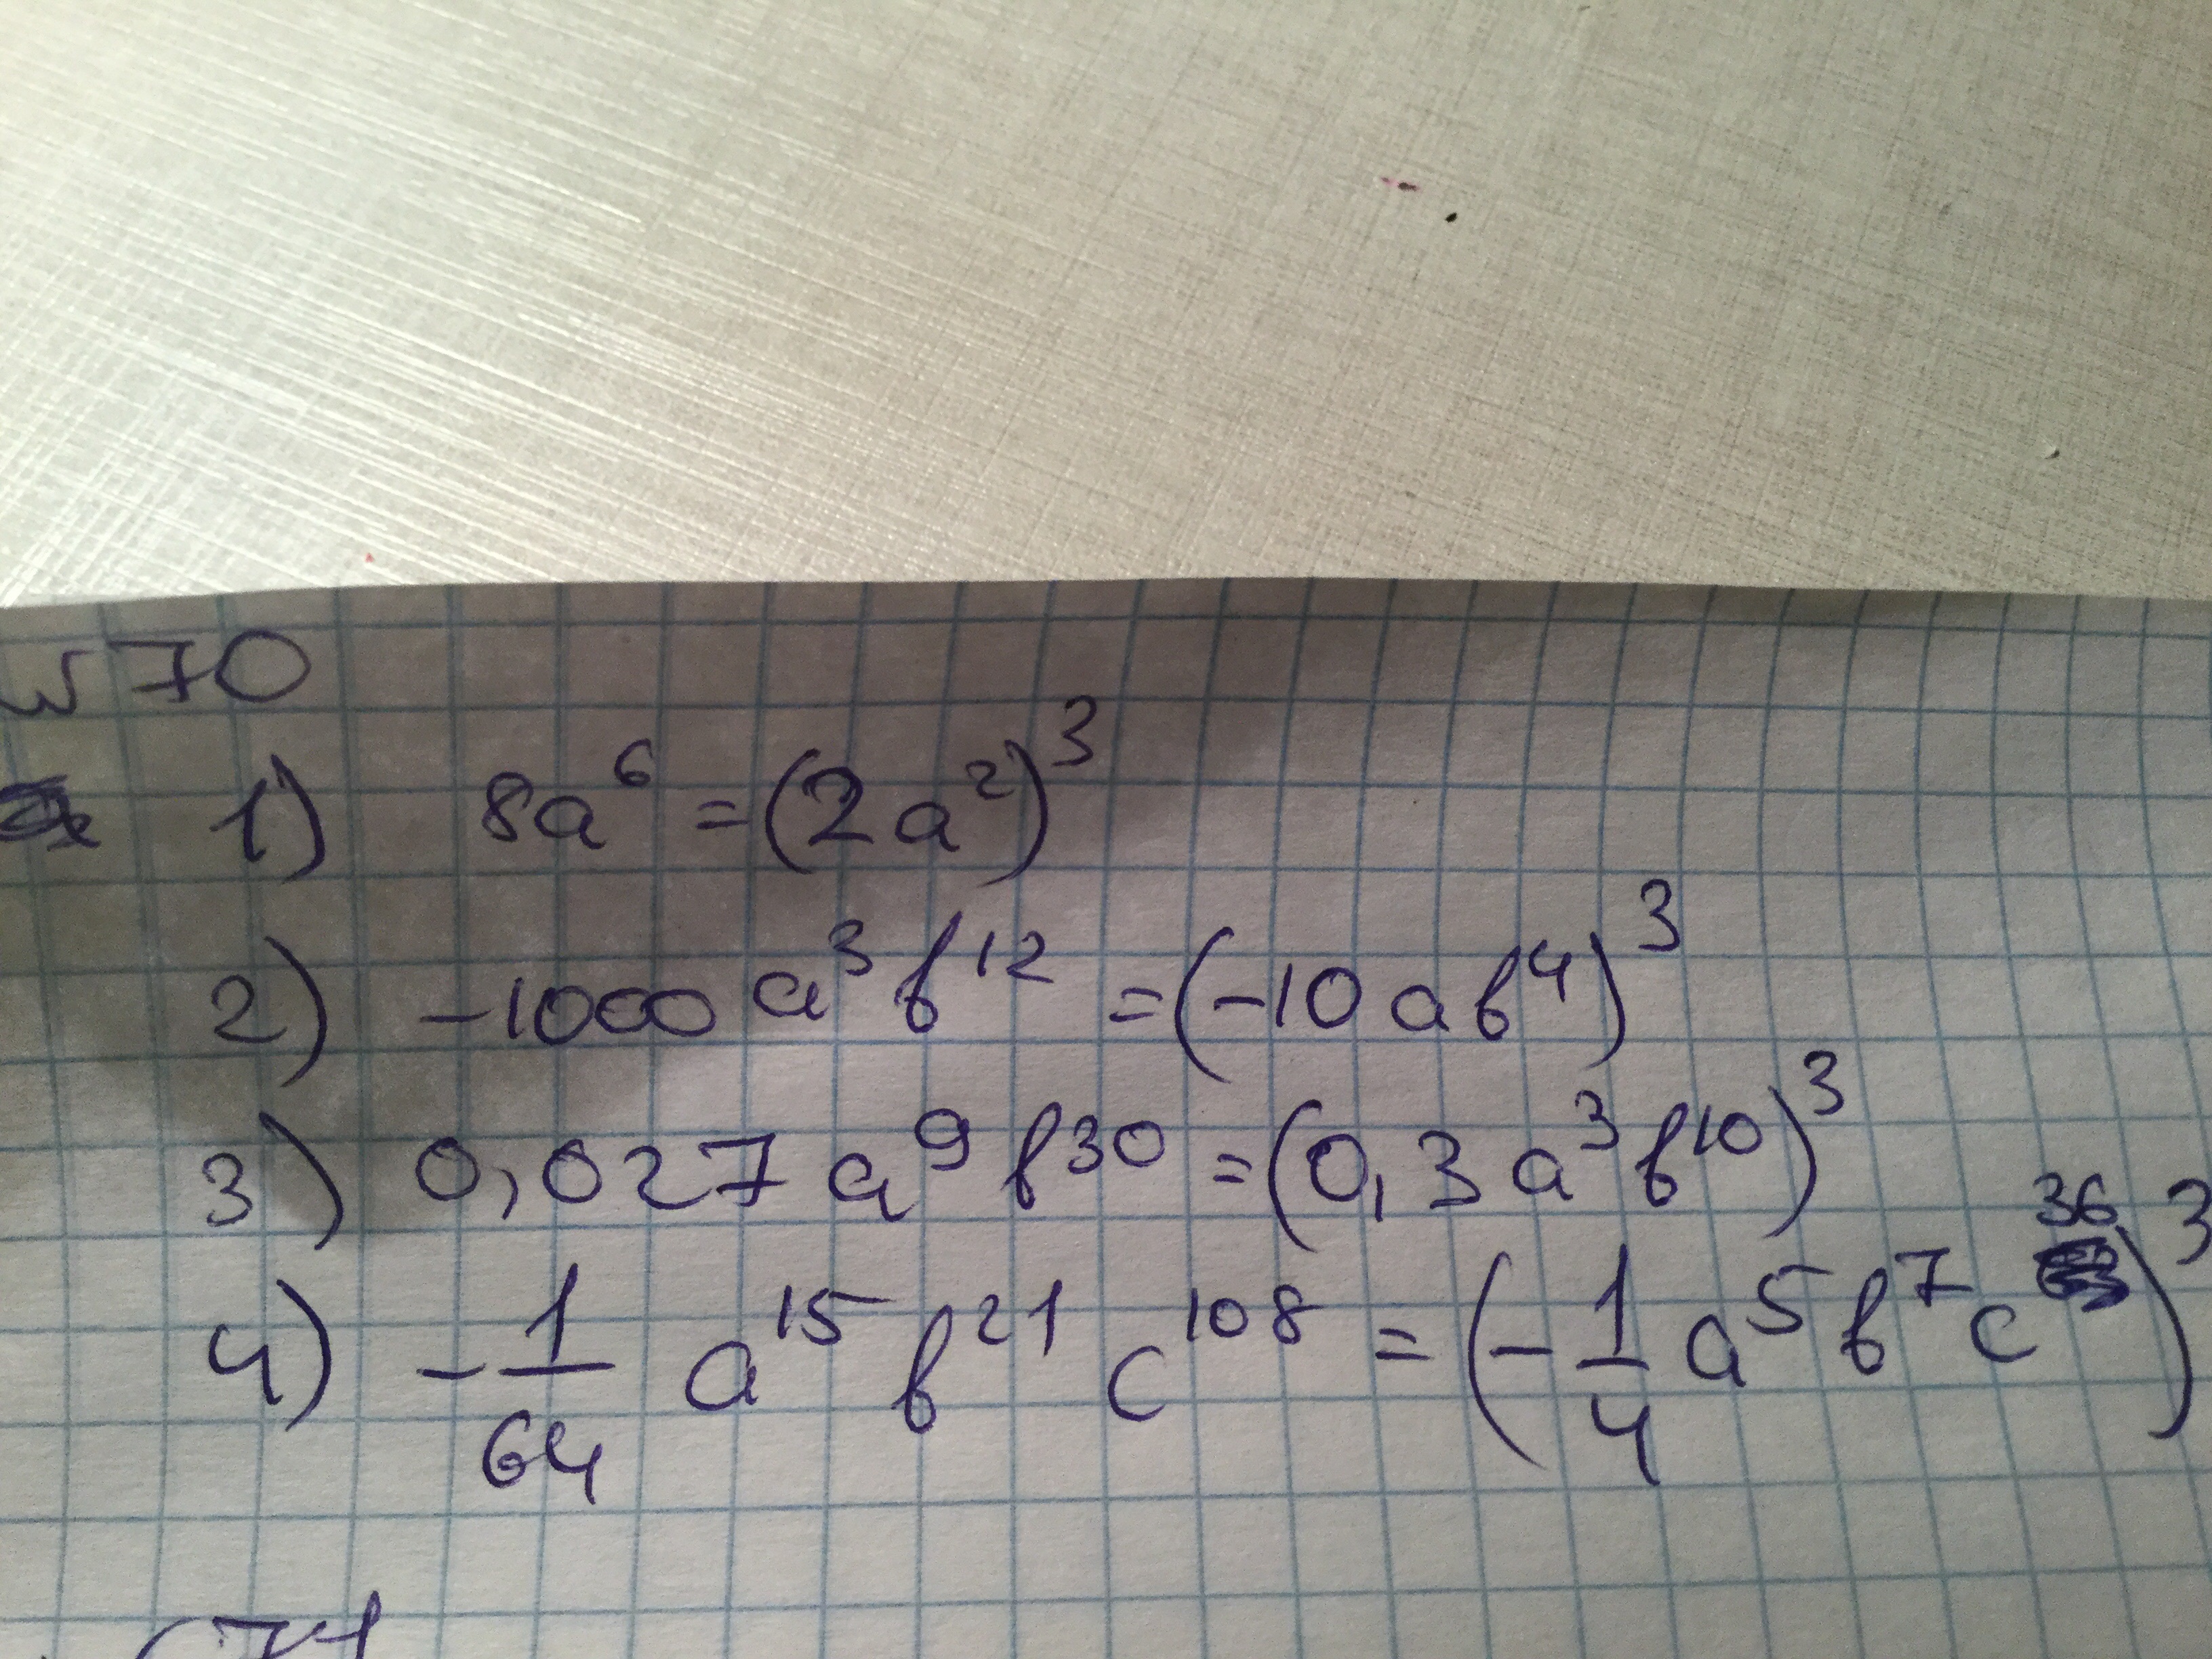 № 70
1) 8a⁶ = (2a²)³
2) -1000a³b¹² = (-10ab⁴)³
3) 0,027a⁹b³⁰ = (0,3a³b¹⁰)³
4) -1/64 a¹⁵b²¹c¹⁰⁸ = (-1/4 a⁵b⁷c³⁶)³